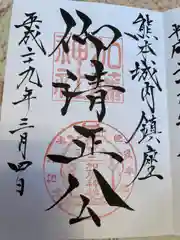 熊本城内鎮座
加藤
神社
仰清正公
平成二十九年三月四日